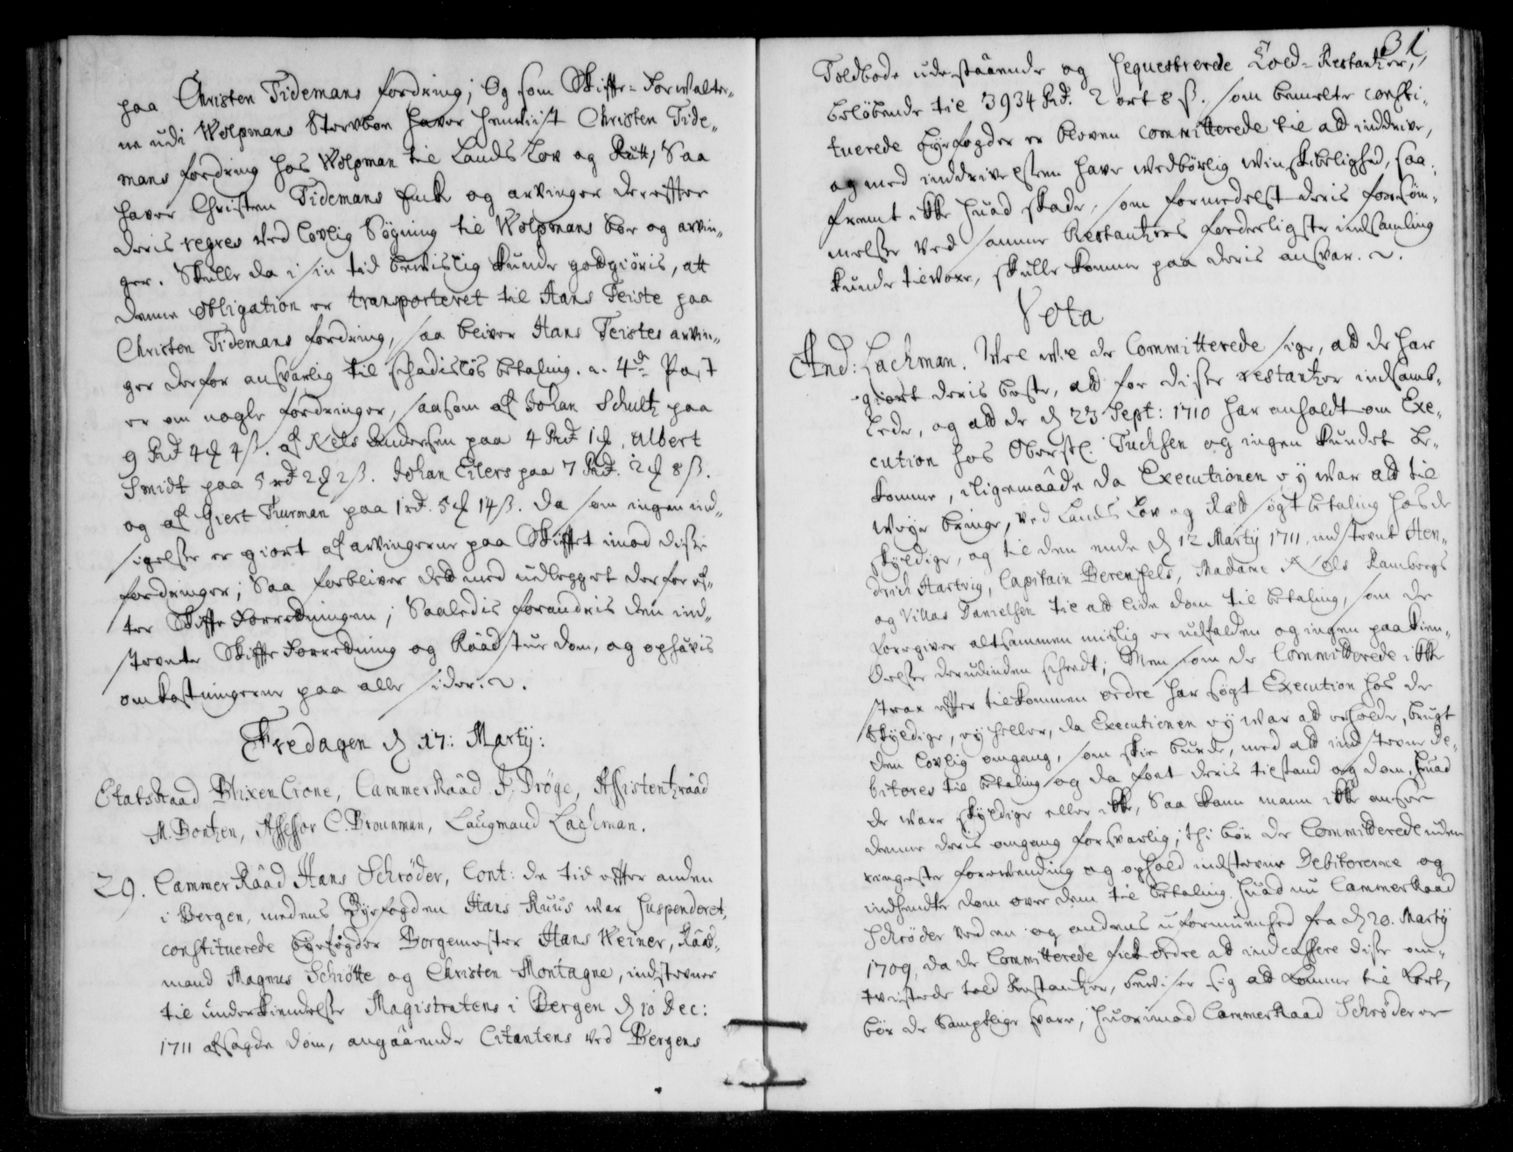 paa Christen Tidemans fordring; Og som Skifte-Forvalter-
ne udi Wolpmans Sterboe haver henviist Christen Tide-
mans fordring hos Wolpman til Lands Lov og Rætt, Saa
haver Christen Tidemans Enke og arvinger derefter
deris regres ved lovlig Søgning til Wolpmans boe og arvin-
ger. Skulle da i sin tid bevislig kunde godtgiøris, att
denne obligation er transporteret til Hans Teiste paa
Christen Tidemans fordring, saa bliver Hans Teistes arvin-
ger derfor ansvarlig til schadisløs betaling. 4de Post
er om nogle fordringer, saasom af Johan Schultz paa
9 Rd 4 4 ß. af Niels Andersen paa 4 Rd 1, Albert
Smidt paa 5 rd 2 2 ß. Johan Eilers paa 7 Rd. 2 8 ß.
og af Giert Fuurman paa 1 rd. 5 14 ß. da som ingen ind-
sigelse er giort af arvingerne paa Skiftet imod disse
fordringer; Saa forbliver det med udlegget derfor ef-
ter Skifte Forretningen; Saaledis forandris den ind-
stevnte Skifte Forretning og Raadstue dom, og ophævis
omkostningerne paa alle sider.
Fredagen d 17: Martij:
EtatsRaad BlixenCrone, CammerRaad F. Dröge, Assistentzraad
M. Bontzen, Assessor C. Brounman, Laugmand Lachman.
29. CammerRaad Hans Schrøder, Cont: de tid efter anden
i Bergen, medens Byefogden Hans Ruus var suspenderet,
constituerede byefogder Borgemester Hans Weiner, Raad-
mand Magnus Schiøtte og Christen Montagne, indstevner
til underkiendelse Magistratens i Bergen d 10 Dec:
1711 afsagde dom, angaaende Citantens ved Bergens
31
Toldbode udestaaende og sequestrerede Told-Restantzer,
beløbende til 3934 Rd. 2 ort 8 ß. som bemelte consti-
tuerede byefogder er bleven committerede til at inddrive,
og med inddrivelsen have vedbørlig vinskibelighed, saa-
fremt ikke hvad skade, som formedelst deris forsøm-
melse ved samme Restantzers forderligste indsamling
kunde tilvoxe, skulle komme paa deris ansvar.
Vota
And: Lachman. Vel vil de Committerede sige, at de har
giort deris beste, at faa disse restantzer indsamb-
lede, og at de d 23 Sept: 1710 har anholdt om Exe-
cution hos Oberstl: Tuchsen og ingen kundet be-
komme, iligemaade da Executionen ey var at til
veye bringe, ved Lands Lov og Ræt søgt betaling hos de
skyldige, og til den ende d 12 Martij 1711, indstevnt Hen-
drich Hartvig, Capitain Berenfels, Madame Niels Rambergs
og Villas Danielsen til at lide dom til betaling, som de
foregiver altsammen mislig er udfalden og ingen paakien-
delse derudinden scheedt; Men som de Committerede ikke
strax efter tilkommen ordre har søgt Execution hos de
skyldige, ey heller, da Executionen ey var at erholde, brugt
den lovlig omgang, som skie burde, med at indstevne De-
bitores til betaling og da faaet deris tilstand og dom, hvad
de vare skyldige eller ikke, Saa kand mann ikke ansee
denne deris omgang forsvarlig, thi bør de Committerede uden
ringeste forevending og ophold indstevne Debitorerne og
indhendte dom over dem til betaling. hvad nu CammerRaad
Schrøder ved en og andens uformuenhed fra d 20. Martij
1709, da de Committerede fick ordre at indcassere disse om-
tvistede told Restantzer, beviser sig at komme til kort,
bør de samptlige svare, hvorimod CammerRaad Schrøder er